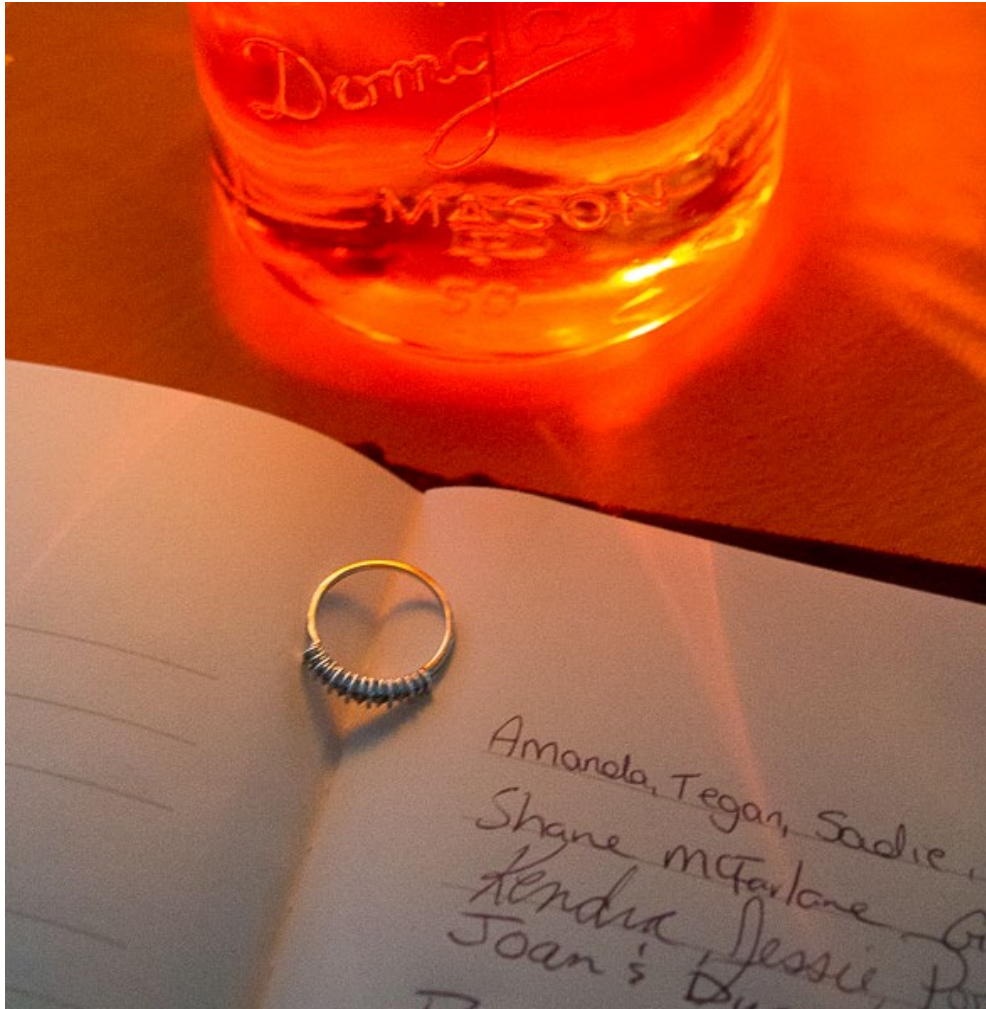 MASON
Amanda, Tegan, Sadie,
Shane McFarlane
Kendra, Jessie,
Joan &